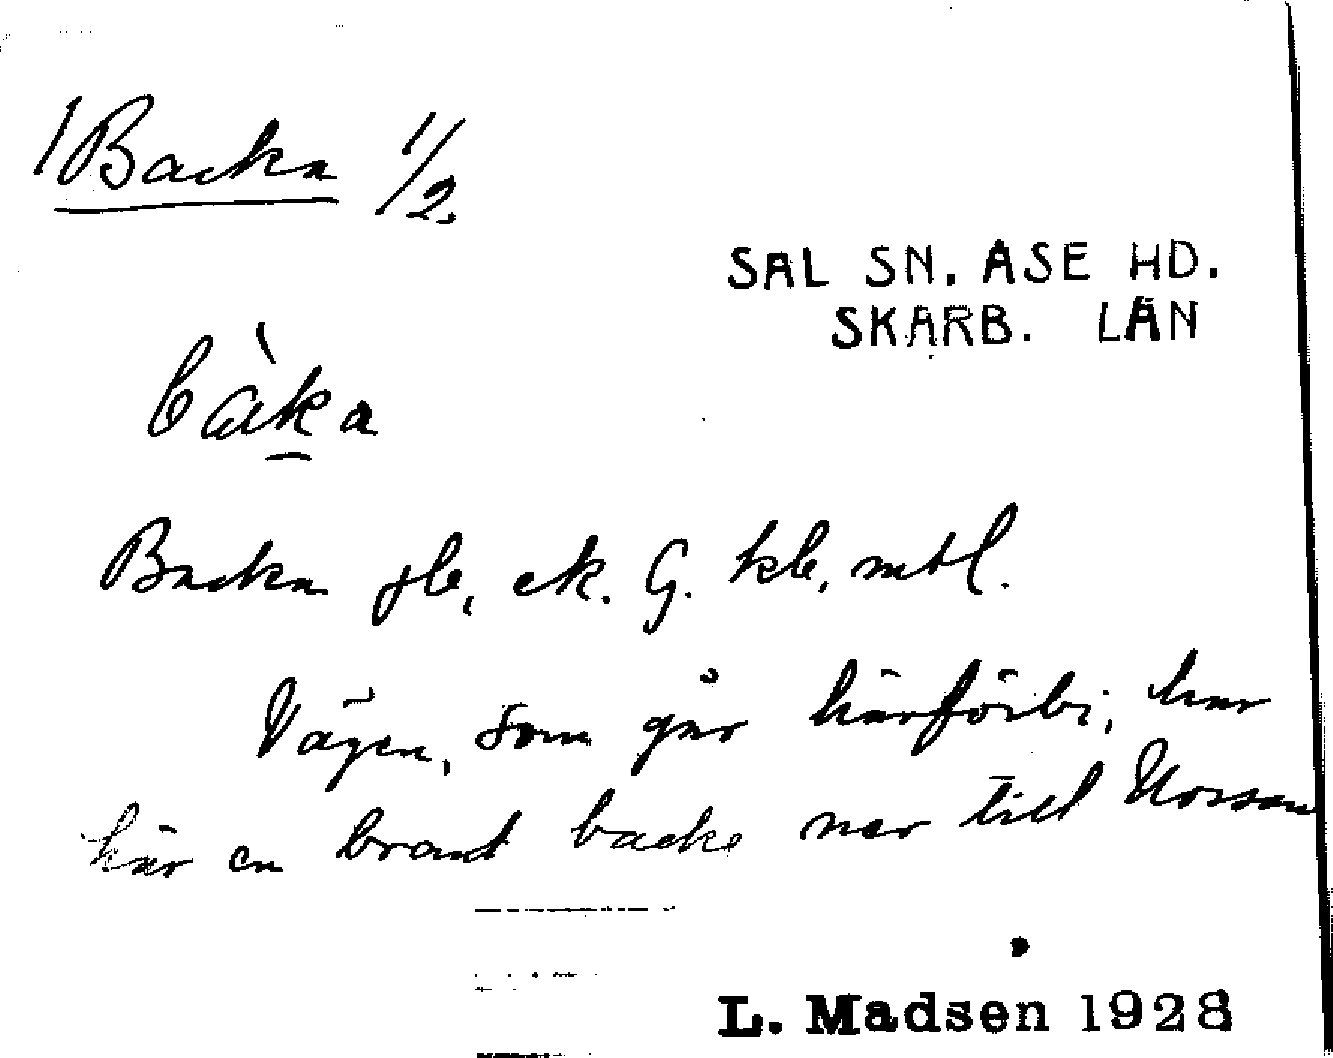 1 Backa 1/2
SAL SN. ÅSE HD.
SKARB. LÄN
bàka
Backa gle, ek. G. kle, mtl.
Vägen, som går härförbi, har
här en brant backe ner till Nossan
L. Madsen 1928